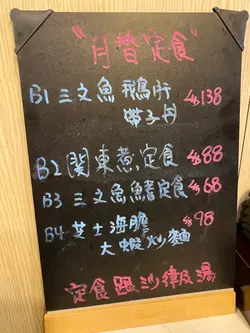 "月替定食"
B1 三文魚 鵝肝 $138
帶子丼
B2 関東煮定食 $88
B3 三文魚魚鰭定食 $68
B4 芝士海膽 $98
大蝦炒麵
定食跟沙律及湯